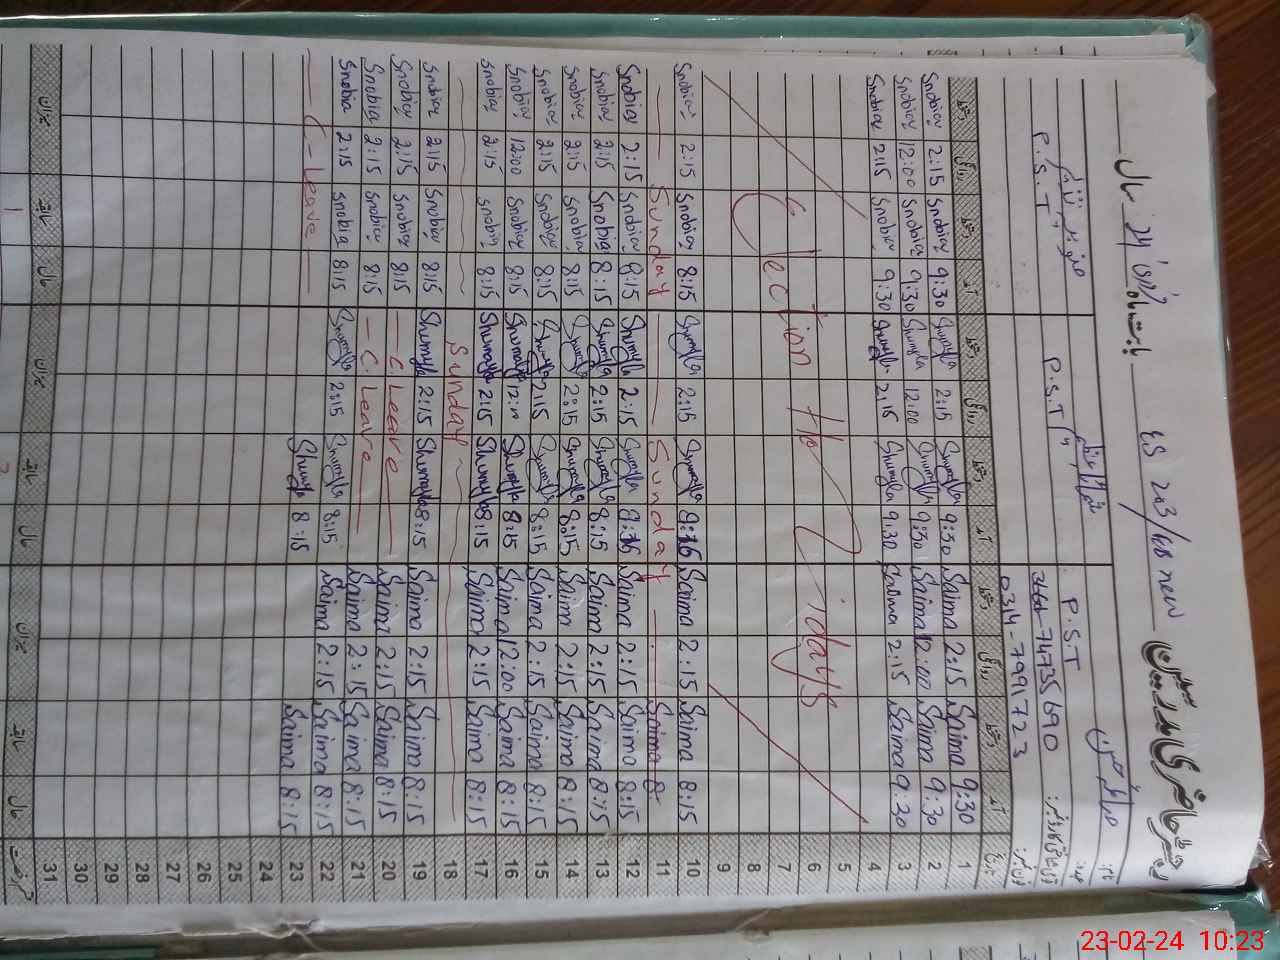 رجسٹر حاضری مدرسین ES 203/EB new بابت ماہ فروری 24' سال
نام:
عہدہ: P.S.T P.S.T P.S.T
74735690
فون نمبر: 0314-7991723
دستخط روانگی دستخط آمد دستخط روانگی دستخط آمد دستخط روانگی دستخط آمد تاریخ
Snobia 2:15 Snobia 9:30 Shumyla 2:15 Shumyla 9:30 Saima 2:15 Saima 9:30 1
Snobia 12:00 Snobia 9:30 Shumyla 12:00 Shumyla 9:30 Saima 12:00 Saima 9:30 2
Snobia 2:15 Snobia 9:30 Shumyla 2:15 Shumyla 9:30 Saima 2:15 Saima 9:30 3
4
5
6
Election Holidays 7
8
9
Snobia 2:15 Snobia 8:15 Shumyla 2:15 Shumyla 8:15 Saima 2:15 Saima 8:15 10
Sunday Sunday Saima 8 11
Snobia 2:15 Snobia 8:15 Shumyla 2:15 Shumyla 8:15 Saima 2:15 Saima 8:15 12
Snobia 2:15 Snobia 8:15 Shumyla 2:15 Shumyla 8:15 Saima 2:15 Saima 8:15 13
Snobia 2:15 Snobia 8:15 Shumyla 2:15 Shumyla 8:15 Saima 2:15 Saima 8:15 14
Snobia 2:15 Snobia 8:15 Shumyla 2:15 Shumyla 8:15 Saima 2:15 Saima 8:15 15
Snobia 12:00 Snobia 8:15 Shumyla 12:00 Shumyla 8:15 Saima 12:00 Saima 8:15 16
Snobia 2:15 Snobia 8:15 Shumyla 2:15 Shumyla 8:15 Saima 2:15 Saima 8:15 17
Sunday 18
Snobia 2:15 Snobia 8:15 Shumyla 2:15 Shumyla 8:15 Saima 2:15 Saima 8:15 19
Snobia 2:15 Snobia 8:15 C. Leave Saima 2:15 Saima 8:15 20
Snobia 2:15 Snobia 8:15 C. Leave Saima 2:15 Saima 8:15 21
Snobia 2:15 Snobia 8:15 Shumyla 2:15 Shumyla 8:15 Saima 2:15 Saima 8:15 22
C-leave Shumyla 8:15 Saima 8:15 23
24
25
26
27
28
29
30
31
میزان سابقہ حال میزان سابقہ حال میزان سابقہ حال
23-02-24 10:23